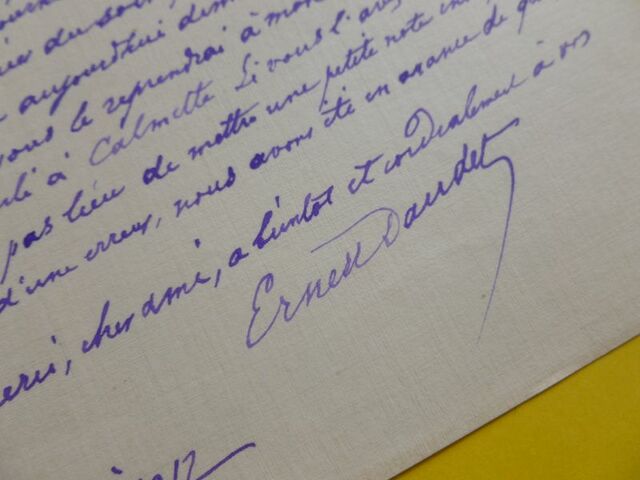 du soir,
aujourdhui dem
vous le reprendrai à mon
à Calmette. Si vous l'av
pas lieu de mettre une petite note in
d'une erreur, nous avons été en avance de qu
cher ami, a bientot et cordialement à vos
Ernest Daudet